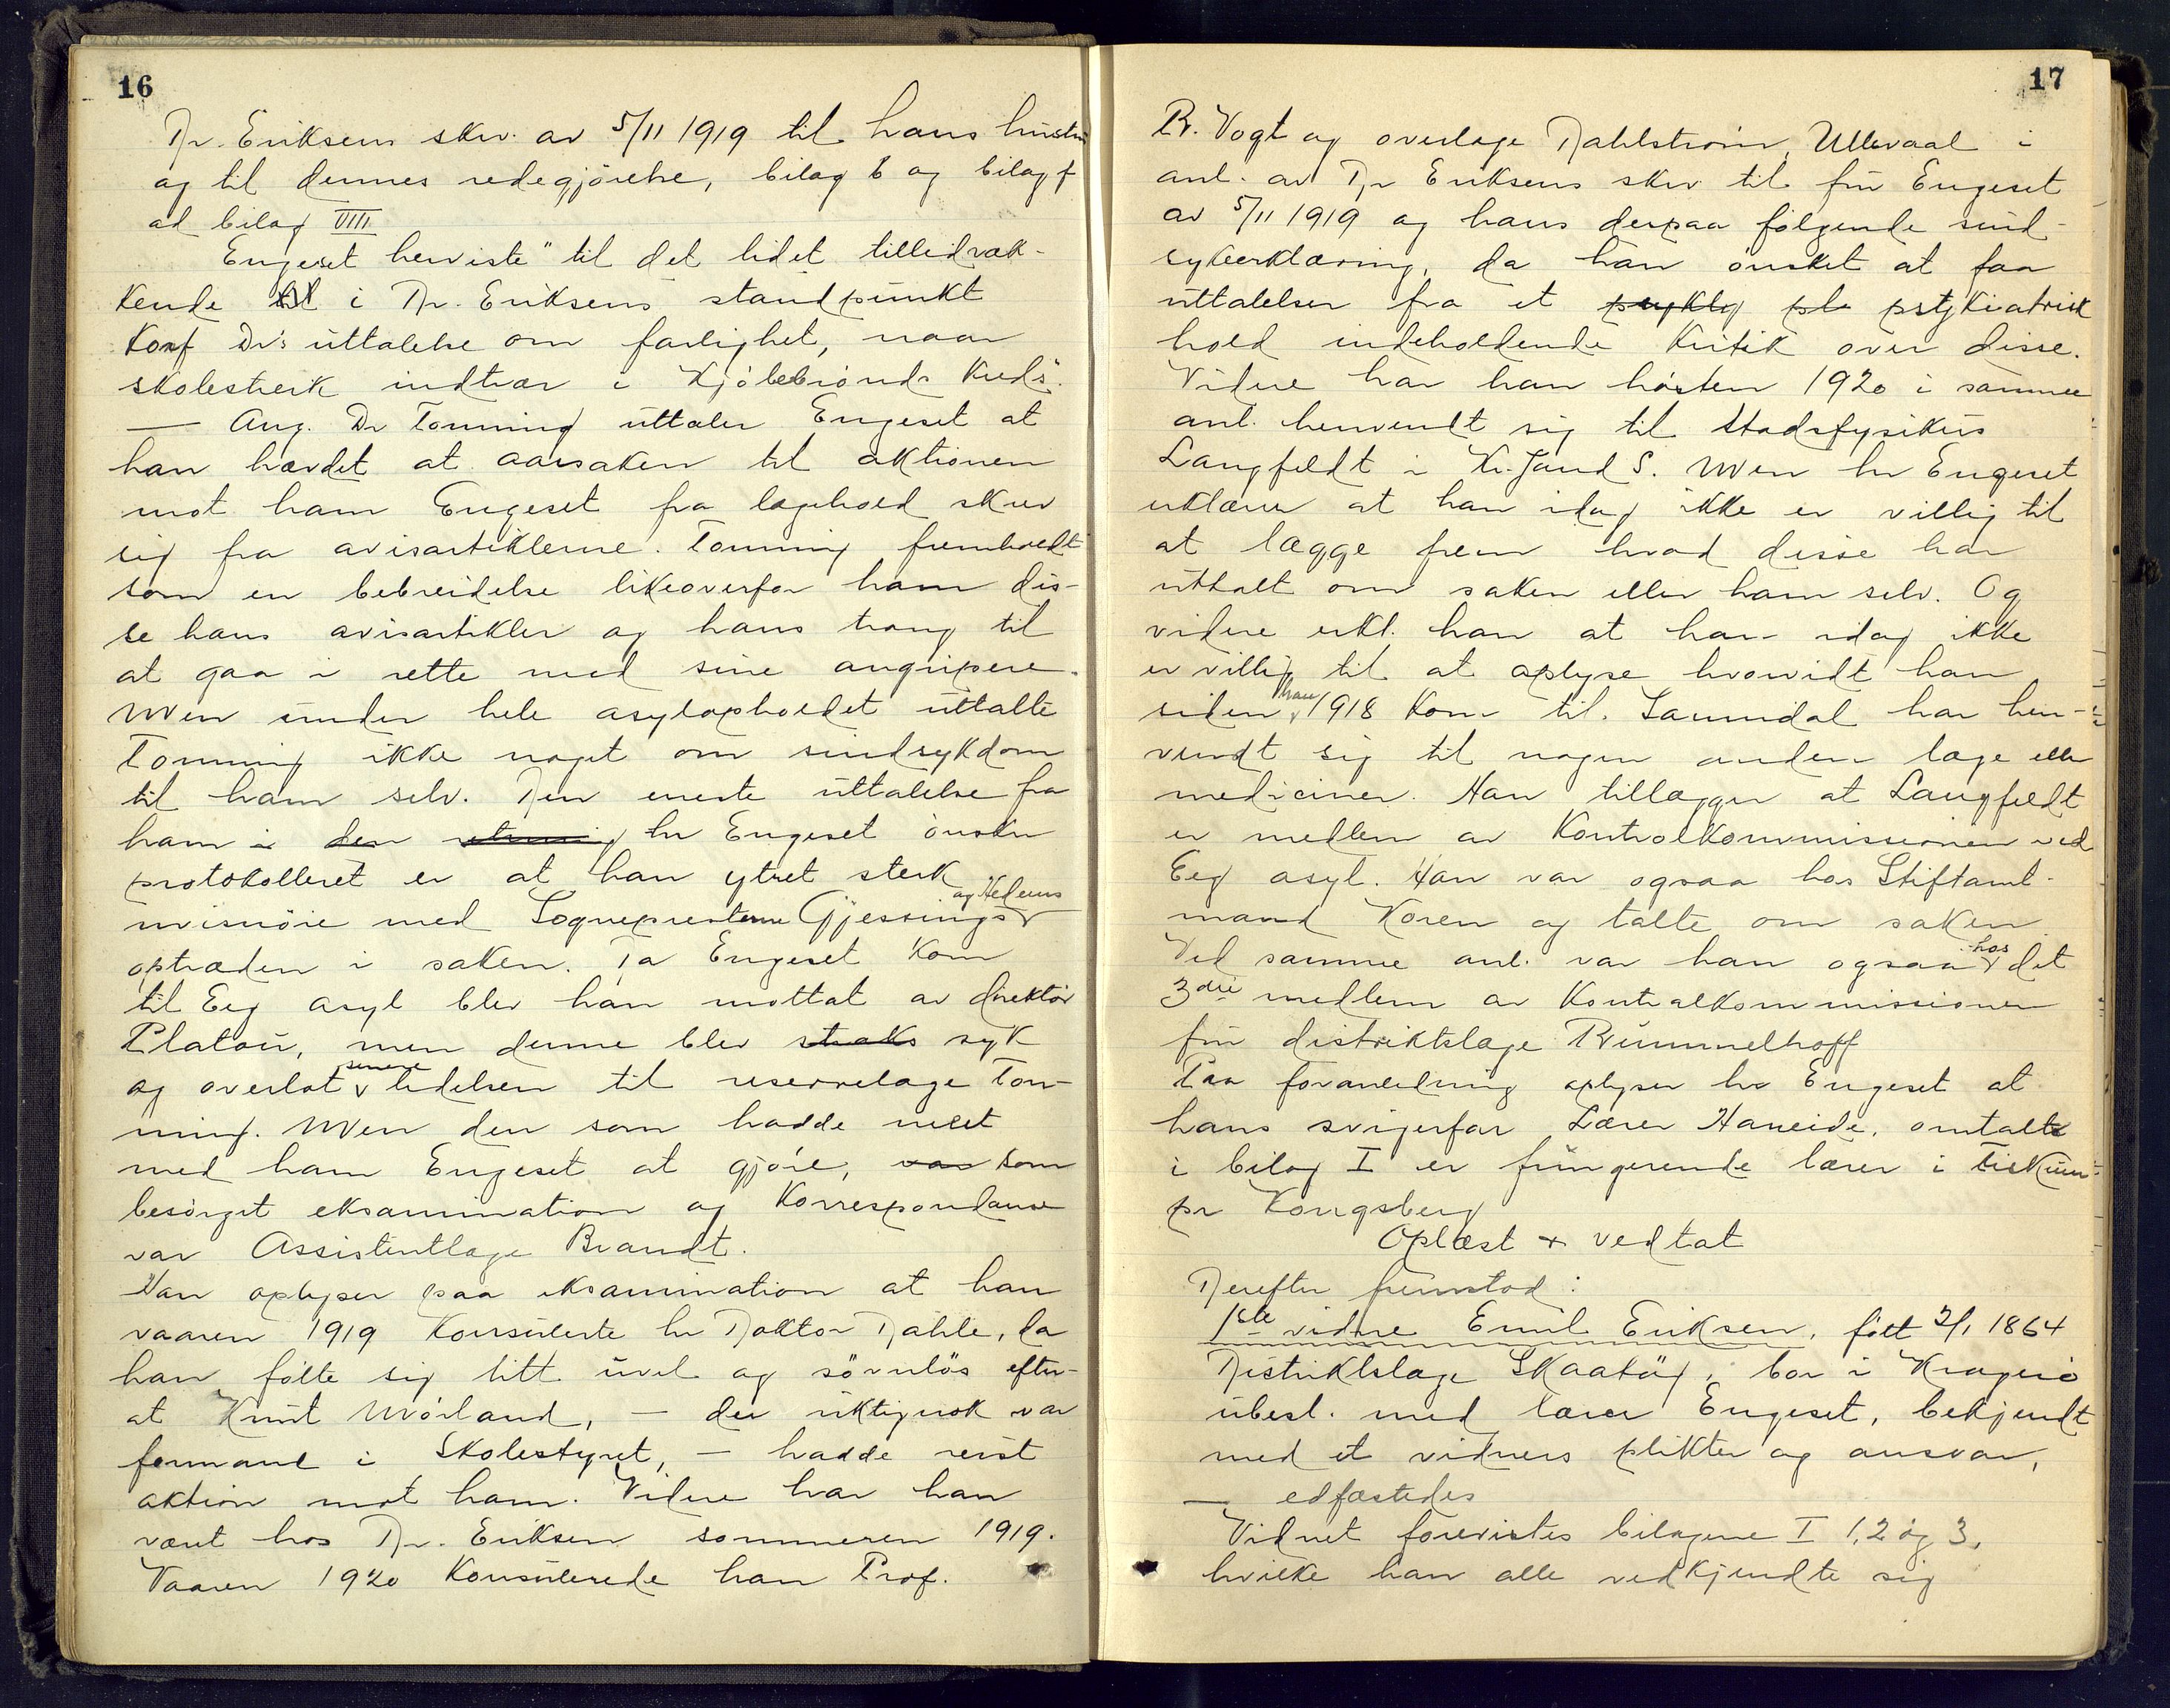 16
Dr. Eriksens skr. av 5/11 1919 til hans hustru
og til dennes redegjörelse, bilag b og bilag f
ad bilag VIII
Engeset henviste" til det lidet tillidvæk-
kende i Dr. Eriksens standpunkt
Konf Dr's uttalelse om farlighet, naar
skolestreik indtrær i Kjölebrönds Kreds.
— Ang. Dr Tonning uttaler Engeset at
han hævdet at aarsaken til aktionen
mot ham Engeset fra lægehold skrev
sig fra avisartiklerne. Tonning fremholdt
som en bebreidelse likeoverfor ham dis-
se hans avisartikler og hans trang til
at gaa i rette med sine angripere.
Men under hele asylopholdet uttalte
Tonning ikke noget om sindsykdom
til ham selv. Den eneste uttalelse fra
ham i den hr Engeset önsker
protokolleret er at han ytret sterk
misnöie med Sogneprestene Gjessings og Hedems
optræden i saken. Da Engeset kom
til Eeg asyl blev han mottat av direktör
Platou, men denne blev straks syk
og overlot senere ledelsen til reservelæge Ton-
ning. Men den som hadde mest
med ham Engeset at gjöre, var som
besörget eksamination og Korrespondanse
var Assistentlæge Brandt.
Han oplyser paa eksamination at han
vaaren 1919 Konsulerte hr Doktor Dahle, da
han fölte sig litt uvel og sövnlös efter-
at Knut Mörland, — der riktignok var
formand i Skolestyret, — hadde reist
aktion mot ham. Videre har han
været hos Dr. Eriksen sommeren 1919.
Vaaren 1920 Konsulerede han Prof.
17
R. Vogt og overlæge Dahlström, Ullevaal i
anl. av Dr Eriksens skr til fru Engeset
av 5/11 1919 og hans derpaa fölgende sind-
sykeerklæring, da han önsket at faa
uttalelser fra et pstykiatrisk
hold indeholdende Kritik over disse.
Videre har han hösten 1920 i samme
anl. henvendt sig til Stadsfysikus
Langfeldt i Kr.sand S. Men hr Engeset
erklærer at han idag ikke er villig til
at lægge frem hvad disse har
uttalt om saken eller ham selv. Og
videre erkl. han at han idag ikke
er villig til at oplyse hvorvidt han
siden han 1918 Kom til Sannidal har hen-
vendt sig til nogen anden læge eller
mediciner. Han tillægger at Langfeldt
er medlem av Kontrolkommissionen ved
Eeg asyl. Han var ogsaa hos Stiftamt-
mand Koren og talte om saken.
Ved samme anl. var han ogsaa hos det
3die medlem av Kontrolkommissionen
fru distriktslæge Rummelhoff
Paa foranledning oplyser hr Engeset at
hans svigerfar Lærer Haneide, omtalt
i bilag I er fungerende lærer i
pr Kongsberg
Oplæst & vedtat
Derefter fremstod:
1ste vidne Emil Eriksen, född 2/1 1864
Distriktslæge Skaatöy, bor i Kragerö
ubesl. med lærer Engeset, bekjendt
med et vidners plikter og ansvar,
— edfæstedes
Vidnet forevistes bilagene I 1, 2 og 3,
hvilke han alle vedkjendte sig